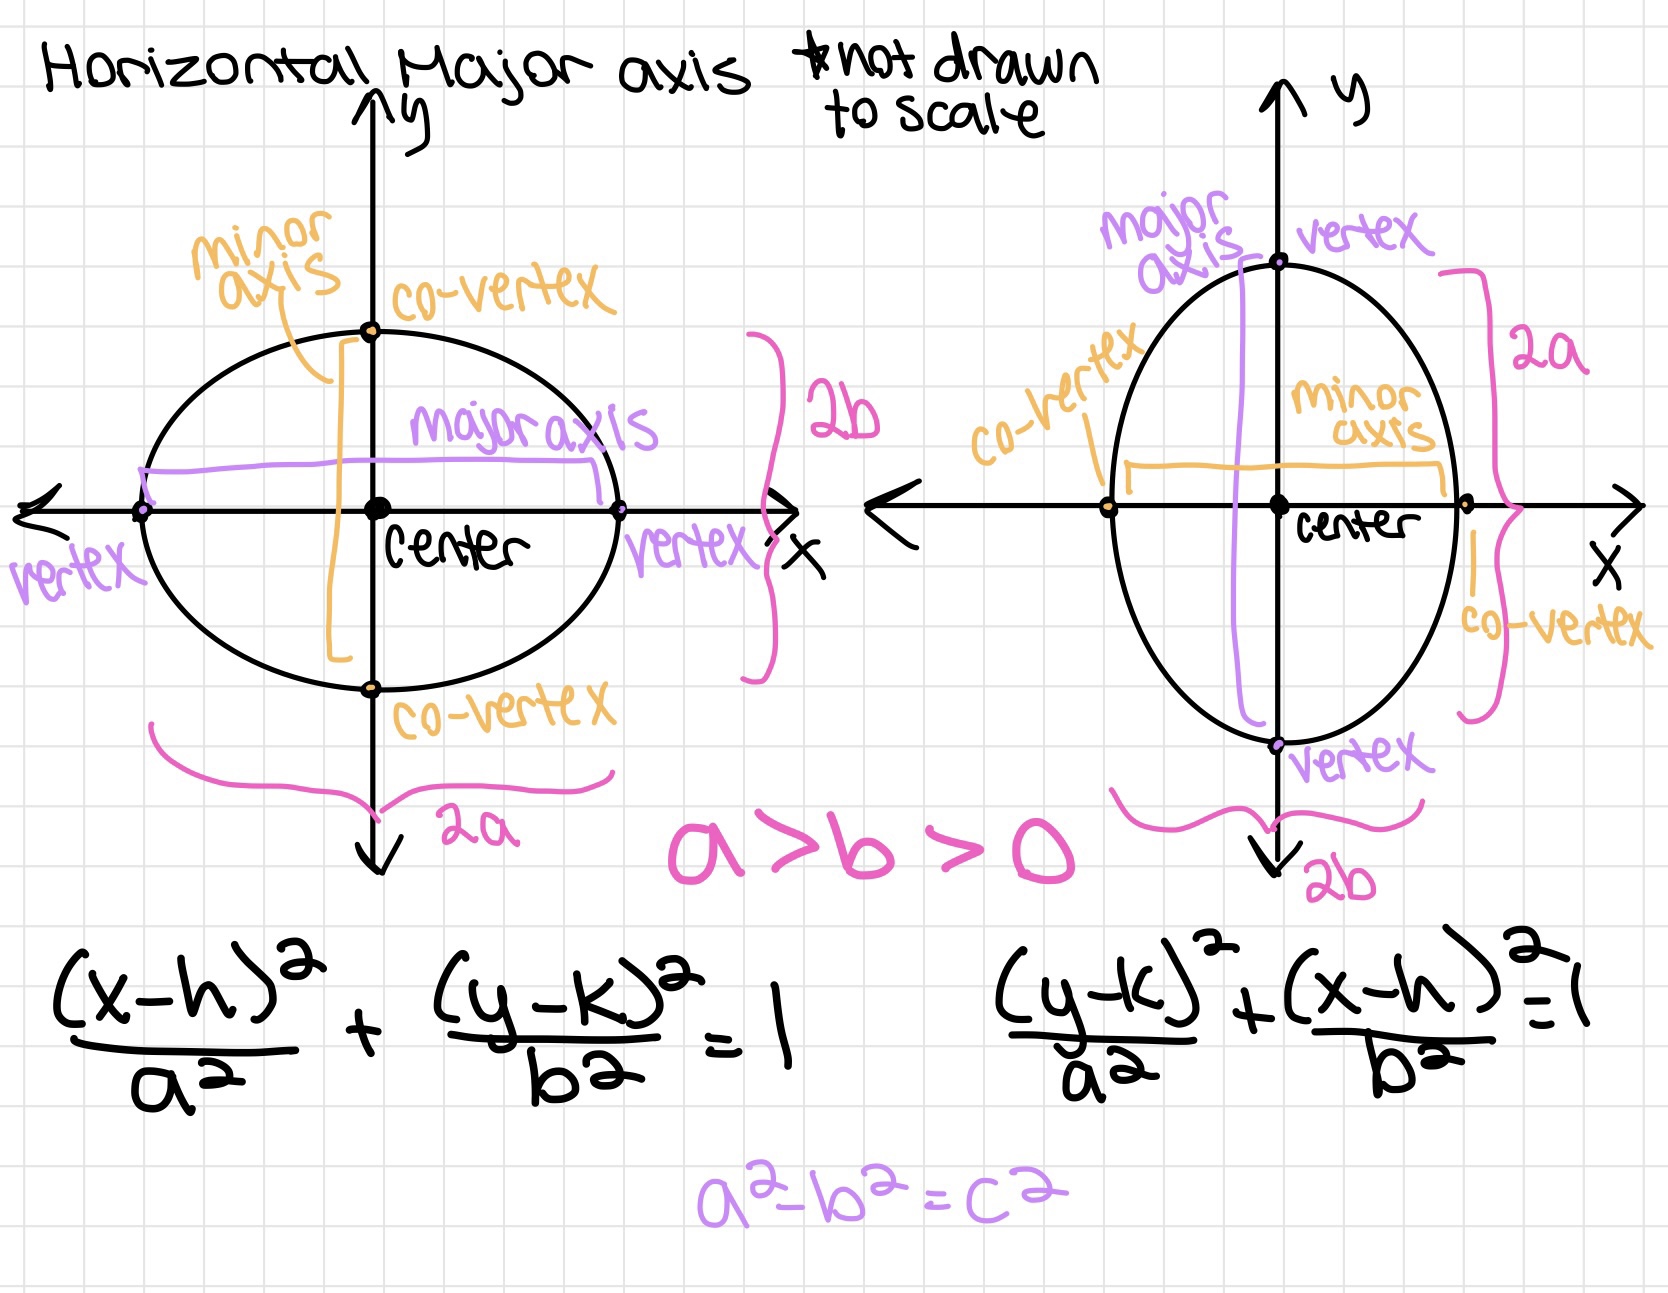 Horizontal Major axis
*not drawn
to scale
y
minor
axis
co-vertex
major axis
2b
vertex
center
vertex
x
co-vertex
2a
y
major
axis
vertex
2a
co-vertex
minor
axis
center
x
co-vertex
vertex
2b
a > b > 0
(x-h)²/a² + (y-k)²/b² = 1
(y-k)²/a² + (x-h)²/b² = 1
a²-b²=c²